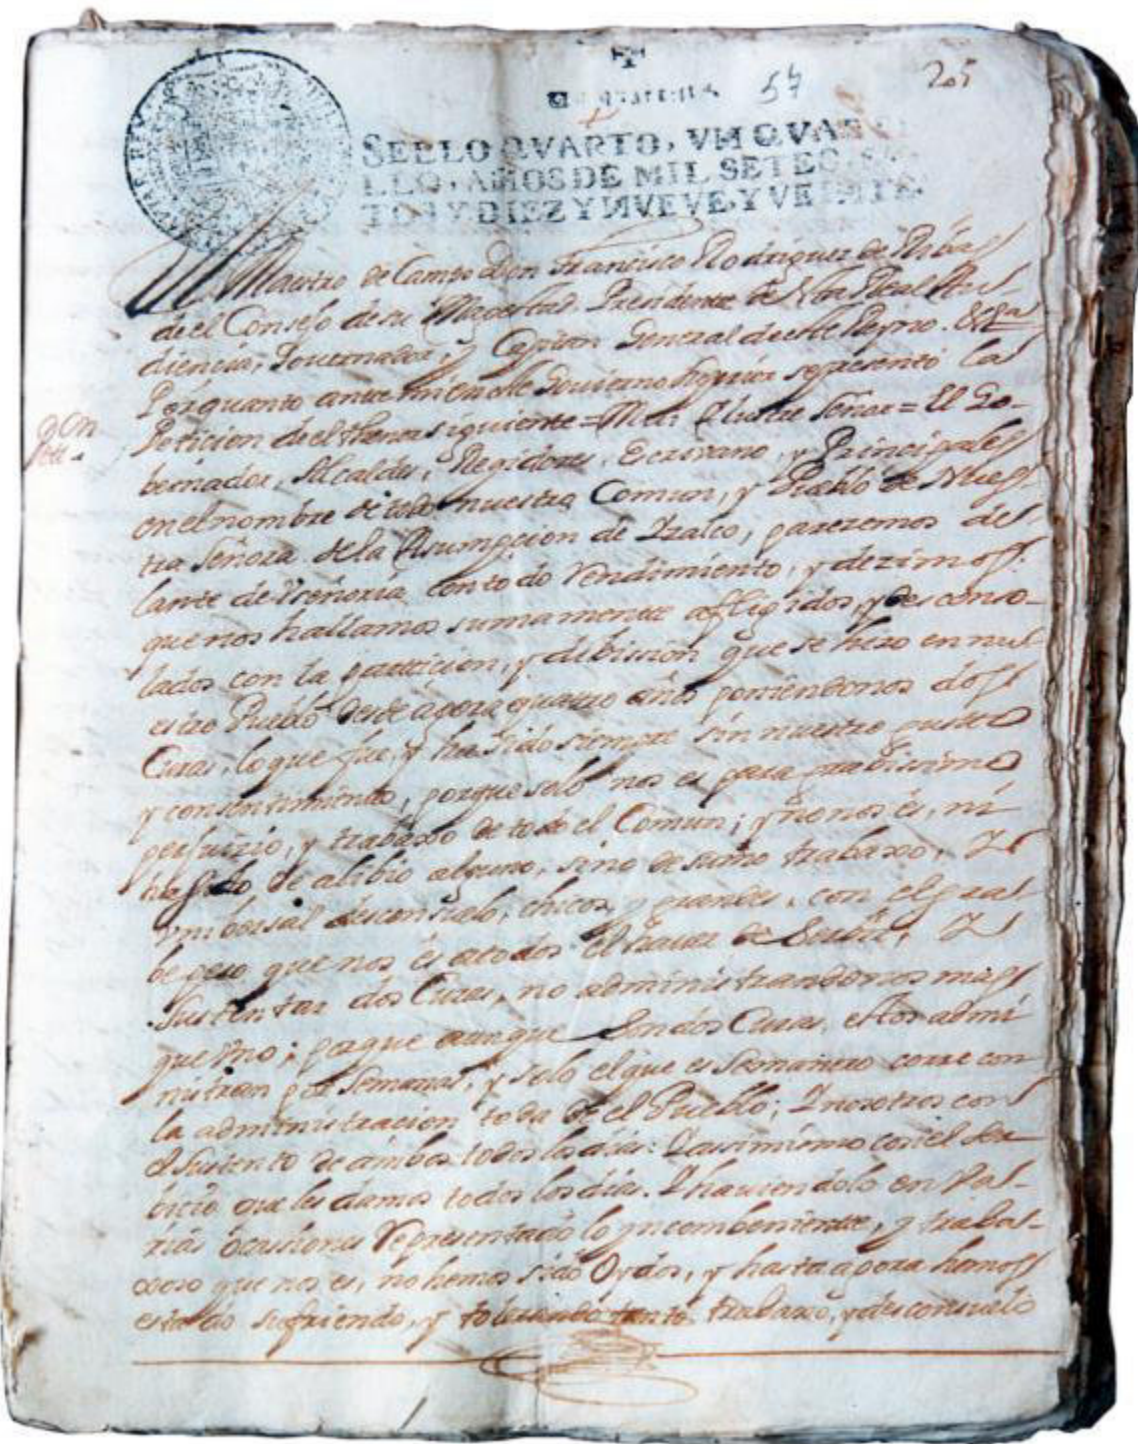 57
205
SELLO QVARTO, VN QVAR
LLO, AÑOS DE MIL SETEC
TOS Y DIEZ Y NVEVE, Y VEINTE.
El Maestro de Campo Don Francisco Rodriguez de Ribas
de el Consejo de su Magestad, Presidente de esta Real Au-
diencia, Gouernador, y Capitan General de este Reyno. &ª
Por quanto ante mi en este Govierno Superior se presentó la
Peticion de el thenor siguiente = Mui Illustre Señor = El Go-
Peti.on
bernador, Alcaldes, Regidores, Escrivano, y Principales
en el nombre de todo nuestro Comun, y Pueblo de Nues-
tra Señora de la Asumpcion de Izalco, parezemos de-
lante de Vseñoria con todo rendimiento, y dezimos:
que nos hallamos sumamente afligidos, y desconso-
lados con la particion, y dibission que se hizo en nu-
estro Pueblo desde agora quatro años poniendonos dos
Curas, lo que fue, y ha sido siempre sin nuestro gusto
y consentimiento, porque solo nos es para grabissimo
perjuizio, y trabaxo de todo el Comun; y no nos és, ni
ha sido de alibio alguno, sino de sumo trabaxo, Y
vniversal desconsuelo, chicos, y grandes, con el gra-
be peso que nos és a todos el haver de Servir, Y
Sustentar dos Curas, no administrandonos mas
que vno; porque aunque son dos Curas, estos admi-
nistran por Semanas, y solo el que es Semanero corre con
la administracion toda de el Pueblo; Y nosotros con
el Sustento de ambos todos los dias: Y assimismo con el ser-
bicio que les damos todos los dias. Y haviendolo en va-
rias ocasiones representado lo yncombeniente, y traba-
xoso que nos es, no hemos sido Oydos, y hasta agora hemos
estado sufriendo, y tolerando tanto trabaxo, y desconsuelo